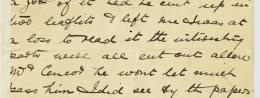 a job of it had he cut up in
two leaflets & left me I was at
a loss to read it the interesting
parts were all cut out allow
Mr Censor he wont let much
pass him I did see by the papers